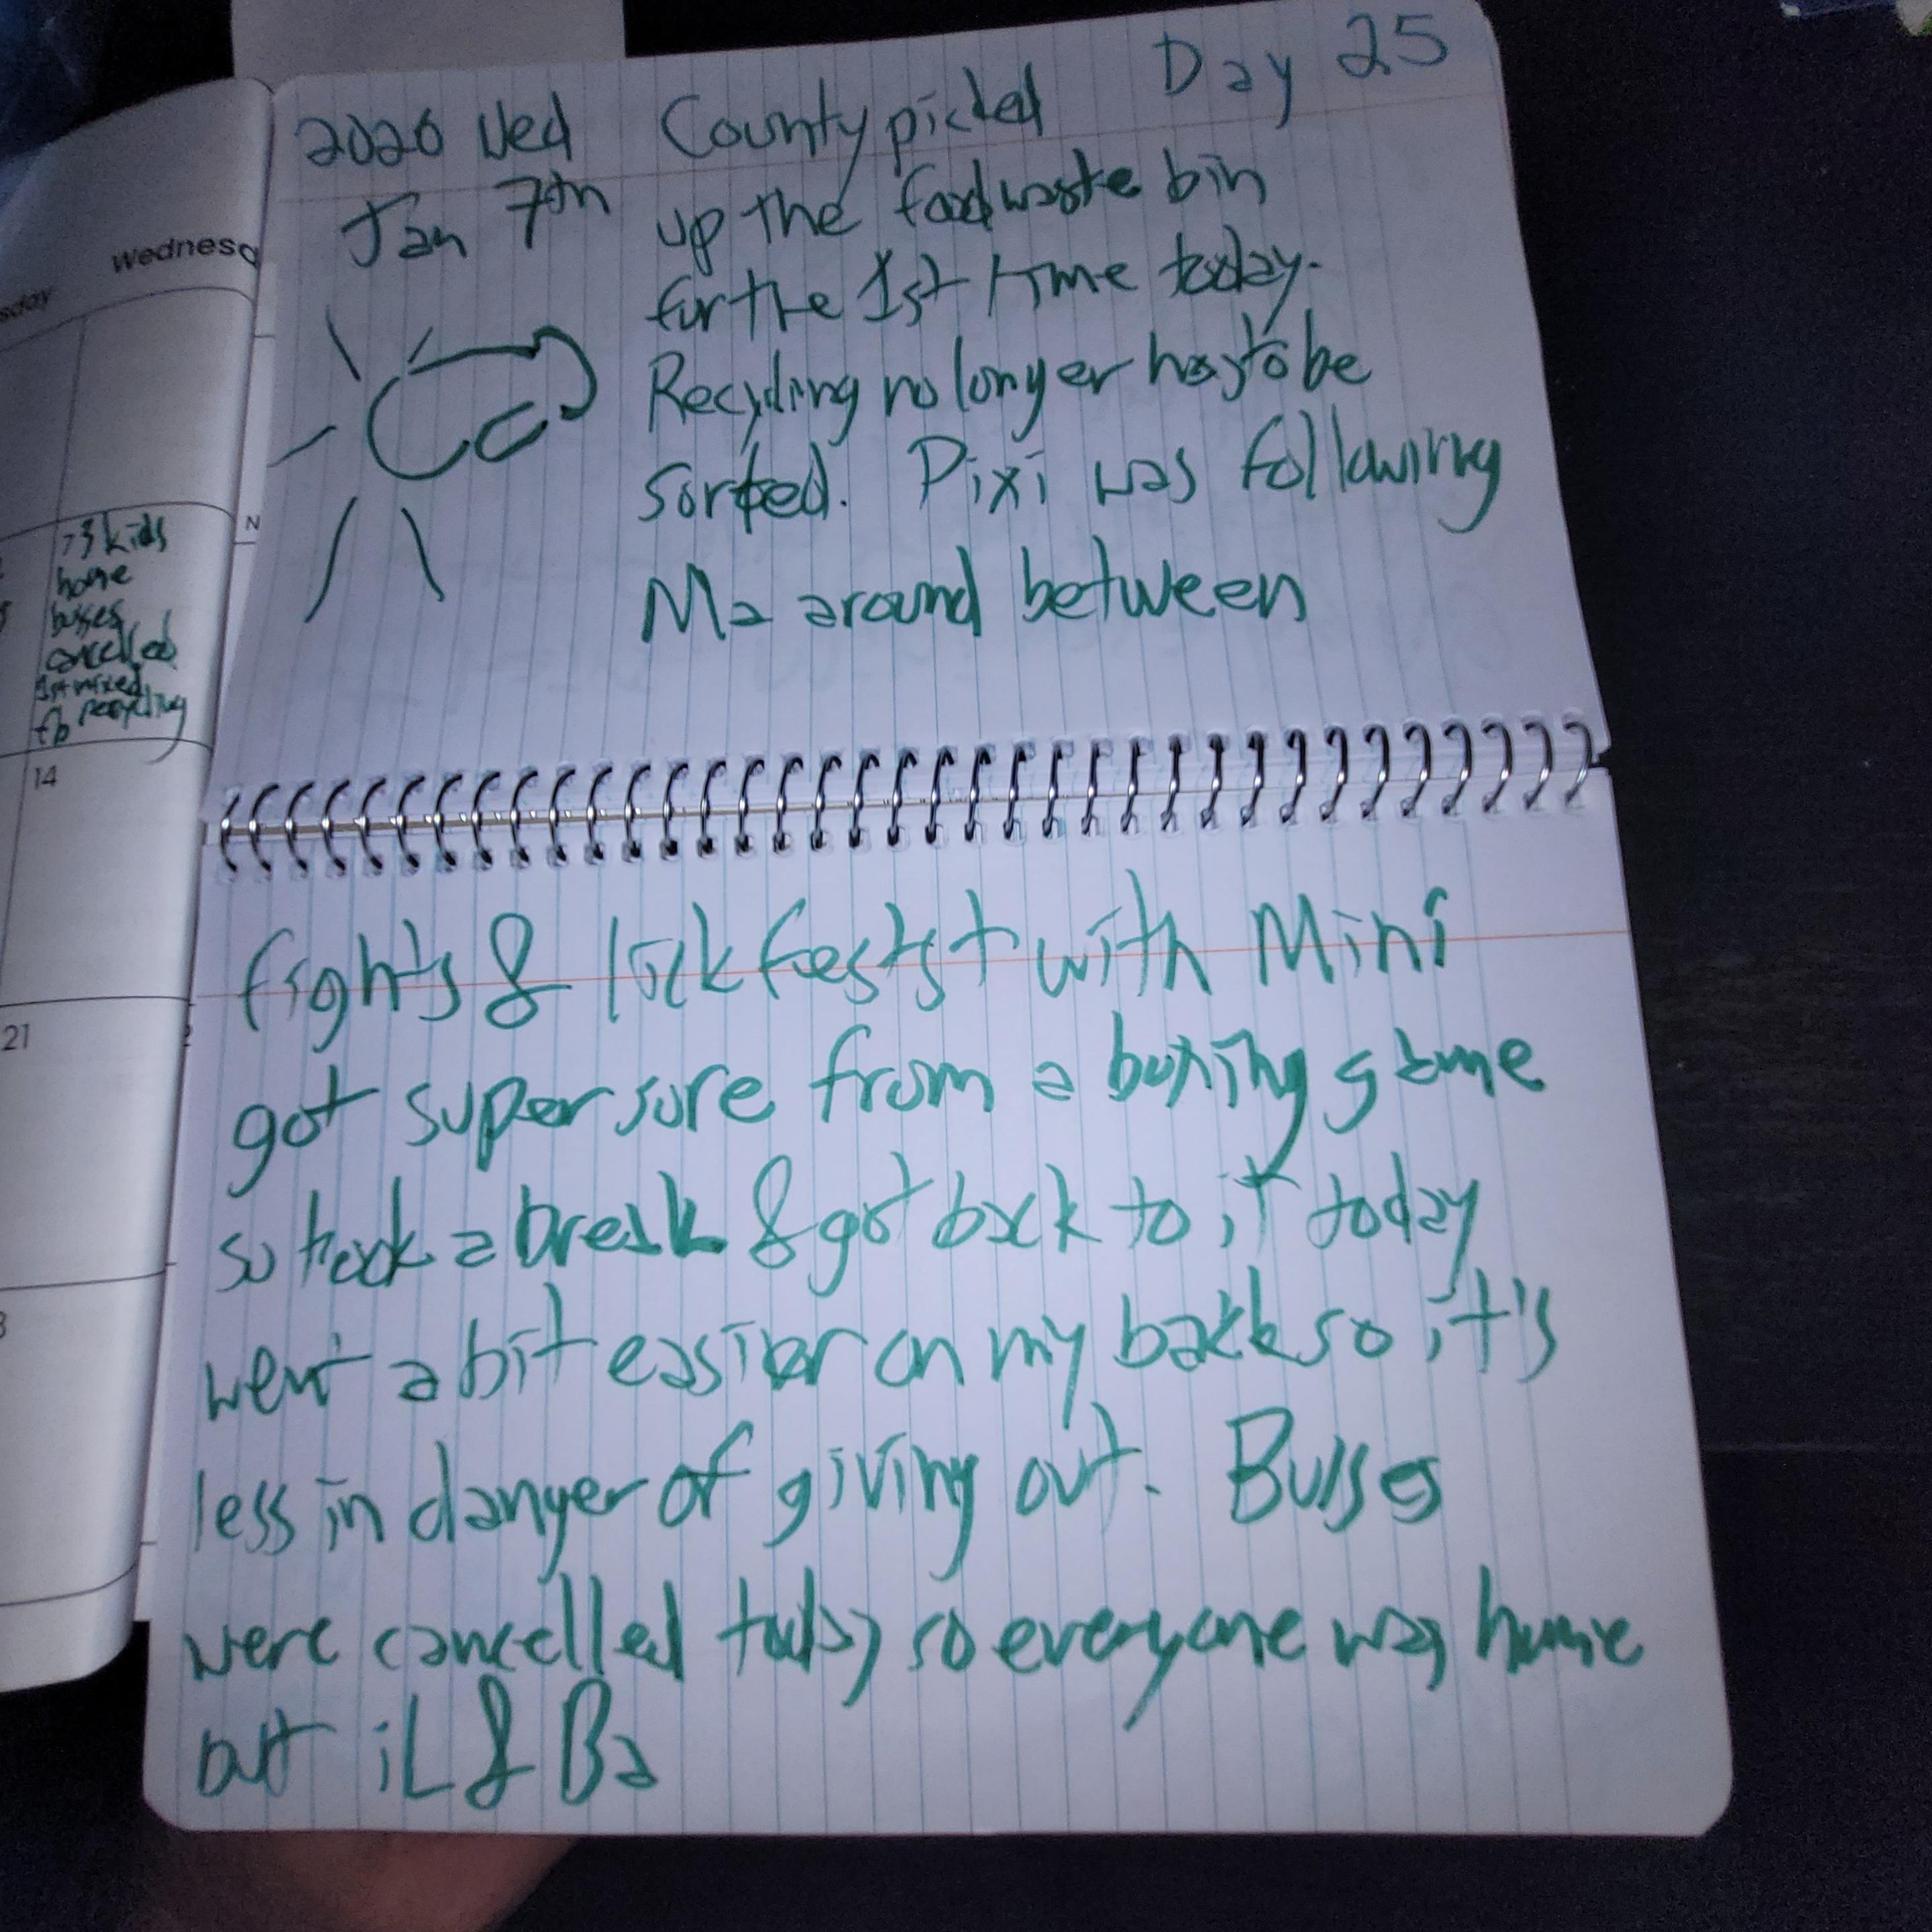 Day 25
2026 Wed County picked
Jan 7th up the food waste bin
for the 1st time today.
Recycling no longer has to be
sorted. Pixi was following
Ma around between
fights & lick fests with Mini
got super sore from a boxing game
so took a break & got back to it today
went a bit easier on my back so it's
less in danger of giving out. Busses
were cancelled today so everyone was home
but iL & Ba
Wednesd
sday
N
3 kids
home
busses
cancelled
1st mixed
recycling
14
21